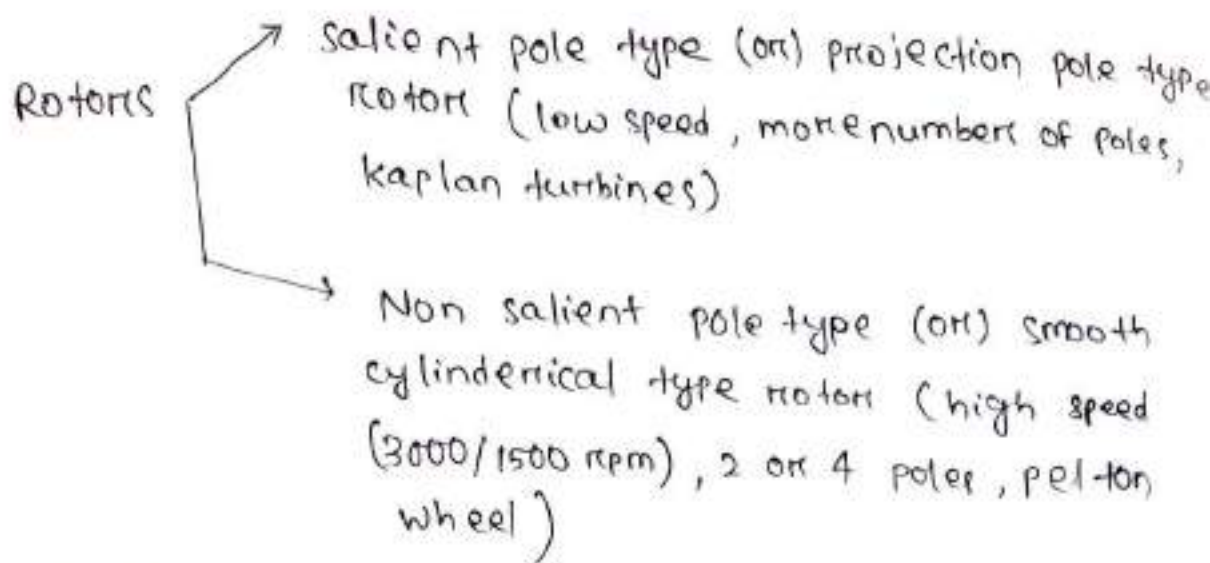 salient pole type (or) projection pole type
Rotors
rotor (low speed, more numbers of poles,
kaplan turbines)
Non salient pole type (or) smooth
cylinderical type rotor (high speed
(3000/1500 rpm), 2 or 4 poles, pelton
wheel)